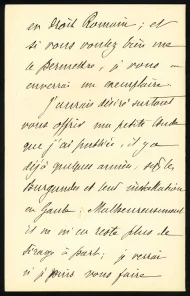 en Droit Romain ; et
si vous voulez bien me
le permettre, je vous en
enverrai un exemplaire.
J'aurais désiré surtout
vous offrir ma petite étude
que j'ai publiée, il y a
déjà quelques années, sur les
Burgundes et leur installation
en Gaule ; Malheureusement
il ne m'en reste plus de
tirage à part ; je verrai
si je puis vous faire